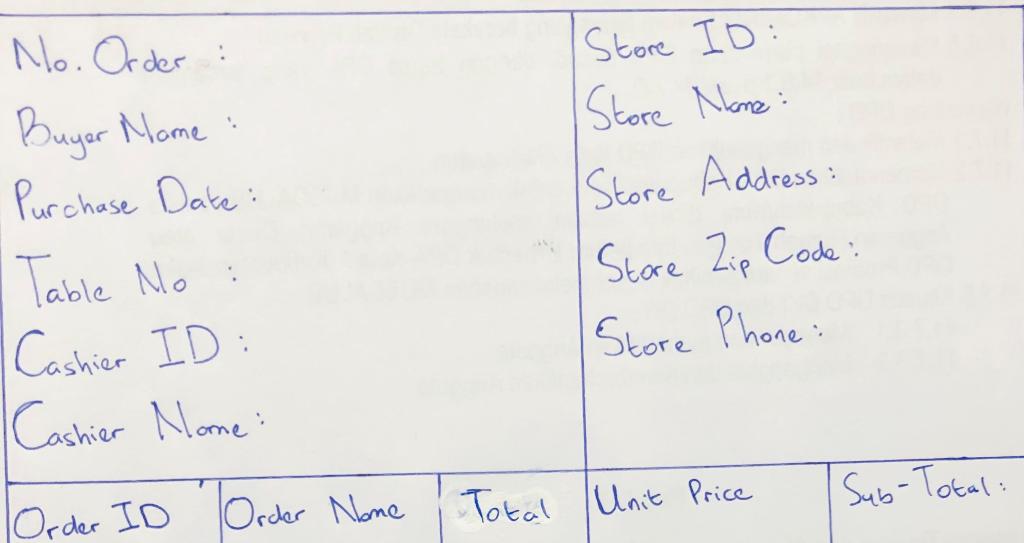 No. Order :
Buyer Name :
Purchase Date :
Table No :
Cashier ID :
Cashier Name :
Store ID :
Store Name :
Store Address :
Store Zip Code :
Store Phone :
Order ID
Order Name
Total
Unit Price
Sub-Total :